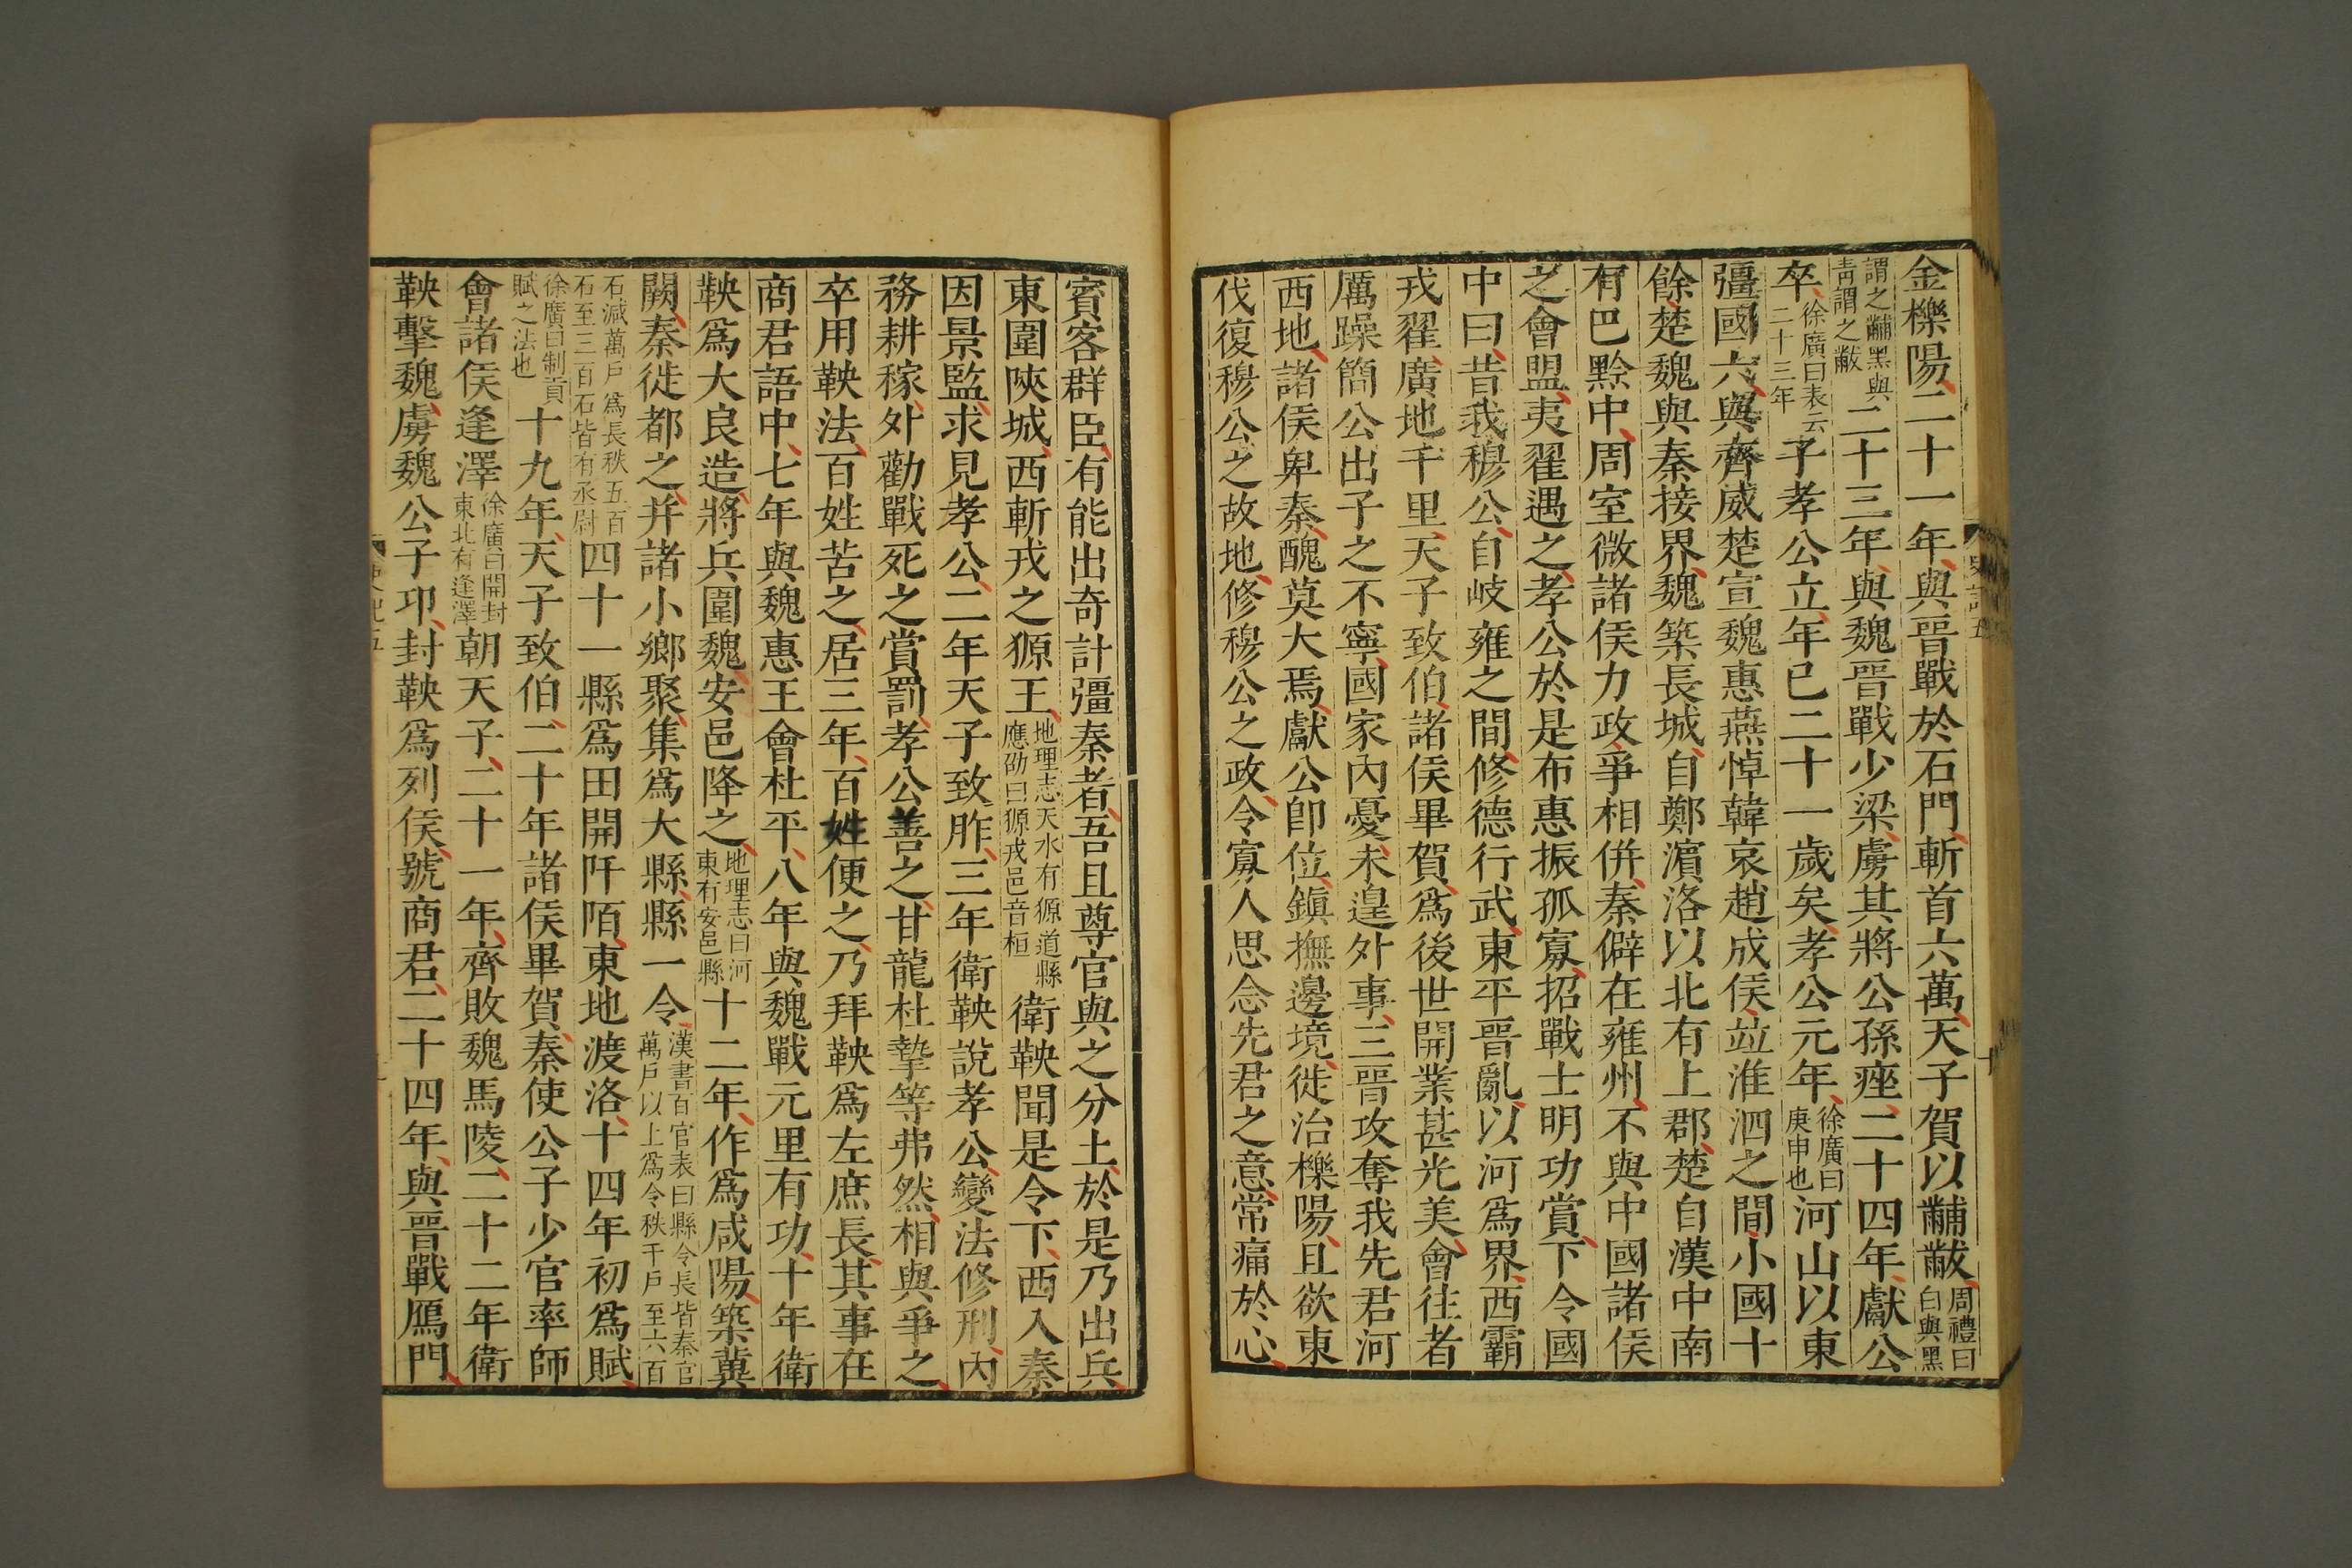 金櫟陽二十一年與晉戰於石門斬首六萬天子賀以黼黻周禮曰白與黑
謂之黼黑與青謂之黻二十三年與魏晉戰少梁虜其將公孫痤二十四年獻公
卒徐廣曰表云二十三年子孝公立年已二十一歲矣孝公元年徐廣曰庚申也河山以東
彊國六與齊威楚宣魏惠燕悼韓哀趙成侯竝淮泗之間小國十
餘楚魏與秦接界魏築長城自鄭濵洛以北有上郡楚自漢中南
有巴黔中周室微諸侯力政爭相併秦僻在雍州不與中國諸侯
之會盟夷翟遇之孝公於是布惠振孤寡招戰士明功賞下令國
中曰昔我穆公自岐雍之間修德行武東平晉亂以河爲界西霸
戎翟廣地千里天子致伯諸侯畢賀爲後世開業甚光美會往者
厲躁簡公出子之不寧國家內憂未遑外事三晉攻奪我先君河
西地諸侯卑秦醜莫大焉獻公卽位鎭撫邊境徙治櫟陽且欲東
伐復穆公之故地修穆公之政令寡人思念先君之意常痛於心
賓客群臣有能出奇計彊秦者吾且尊官與之分土於是乃出兵
東圍陝城西斬戎之獂王地理志天水有獂道縣應劭曰獂戎邑音桓衛鞅聞是令下西入秦
因景監求見孝公二年天子致胙三年衛鞅說孝公變法修刑內
務耕稼外勸戰死之賞罰孝公善之甘龍杜摯等弗然相與爭之
卒用鞅法百姓苦之居三年百姓便之乃拜鞅爲左庶長其事在
商君語中七年與魏惠王會杜平八年與魏戰元里有功十年衛
鞅爲大良造將兵圍魏安邑降之地理志曰河東有安邑縣十二年作爲咸陽築冀
闕秦徙都之并諸小鄉聚集爲大縣縣一令漢書百官表曰縣令長皆秦官萬戶以上爲令秩千戶至六百
石減萬戶爲長秩五百石至三百石皆有丞尉四十一縣爲田開阡陌東地渡洛十四年初爲賦
徐廣曰制貢賦之法也十九年天子致伯二十年諸侯畢賀秦使公子少官率師
會諸侯逢澤徐廣曰開封東北有逢澤朝天子二十一年齊敗魏馬陵二十二年衛
鞅擊魏虜魏公子卬封鞅爲列侯號商君二十四年與晉戰鴈門